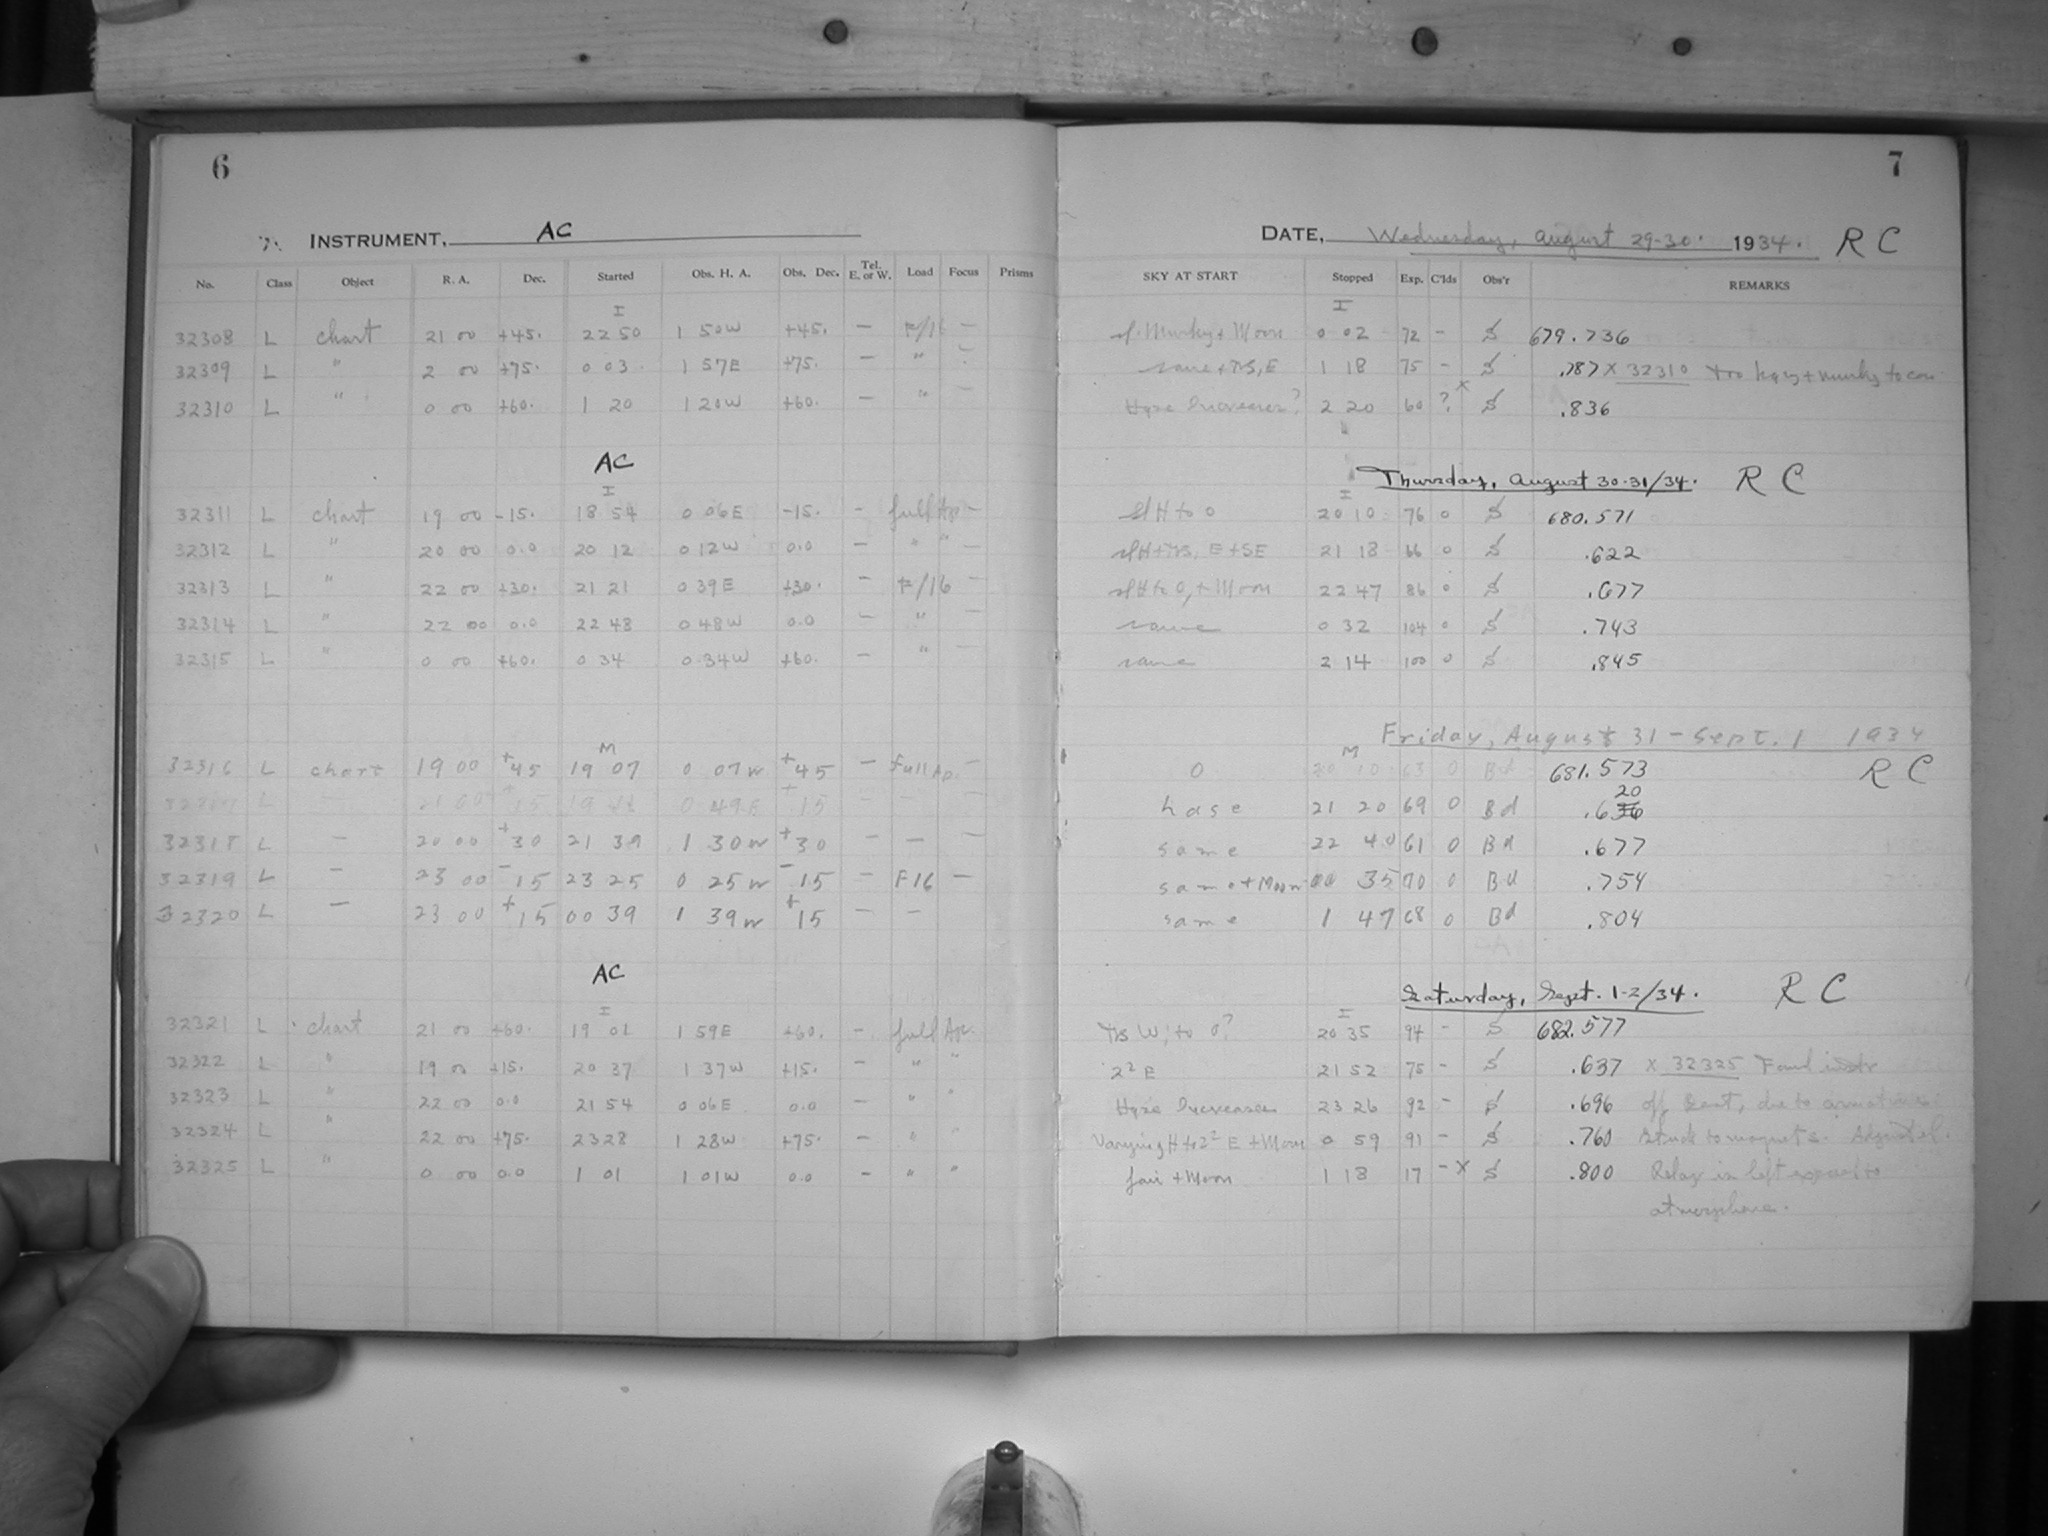 6
INSTRUMENT, AC
No. Class Object R. A. Dec. Started Obs. H. A. Obs. Dec. Tel. E. or W. Load Focus Prisms
I
32308 L chart 21 00 +45. 22 50 1 50W +45. — F/16 —
32309 L " 2 00 +75. 0 03. 1 57E +75. — " —
32310 L " 0 00 +60. 1 20 1 20W +60. — " —
AC
I
32311 L chart 19 00 -15. 18 54 0 06E -15. - full Ap. —
32312 L " 20 00 0.0 20 12 0 12W 0.0 — " " —
32313 L " 22 00 +30. 21 21 0 39E +30. — F/16 —
32314 L " 22 00 0.0 22 48 0 48W 0.0 — " —
32315 L " 0 00 +60. 0 34 0 34W +60. — " —
M
32316 L chart 19 00 +45 19 07 0 07W +45 — Full Ap. —
L 21 00 +15 0 49E +15
32318 L — 20 00 +30 21 39 1 30W +30 — — —
32319 L — 23 00 -15 23 25 0 25W -15 — F16 —
32320 L — 23 00 +15 00 39 1 39W +15 — —
AC
I
32321 L chart 21 00 +60. 19 01 1 59E +60. — full Apr.
32322 L " 19 00 +15. 20 37 1 37W +15. — " "
32323 L " 22 00 0.0 21 54 0 06E 0.0 — " "
32324 L " 22 00 +75. 23 28 1 28W +75. — " "
32325 L " 0 00 0.0 1 01 1 01W 0.0 — " "
7
DATE, Wednesday, August 29-30. 1934. R C
SKY AT START Stopped Exp. C'lds Obs'r REMARKS
I
sl. Murky + Moon 0 02 72 - S 679.736
same + E 1 18 75 - S .787 x 32310 too hazy + murky to con
Haze Increases? 2 20 60 ? x S .836
Thursday, August 30-31/34. R C
I
sl H to 0 20 10 76 0 S 680.571
E + SE 21 18 66 0 S .622
sl H to 0, + Moon 22 47 86 0 S .677
same 0 32 104 0 S .743
same 2 14 100 0 S .845
Friday, August 31 - Sept. 1 1934
M
0 20 10 63 0 Bd 681.573 R C
20
hase 21 20 69 0 Bd .636
same 22 40 61 0 Bd .677
same + Moon 00 35 70 0 Bd .754
same 1 47 68 0 Bd .804
Saturday, Sept. 1-2/34. R C
I
W, to 0? 20 35 94 - S 682.577
2² E 21 52 75 - S .637 x 32325 Found instr
Haze Increases 23 26 92 - S .696 off east, due to armature
Varying H to 2² E + Moon 0 59 91 - S .760 stuck to magnets. Adjusted.
fair + Moon 1 18 17 - x S .800 Relay in left exposed to
atmosphere.